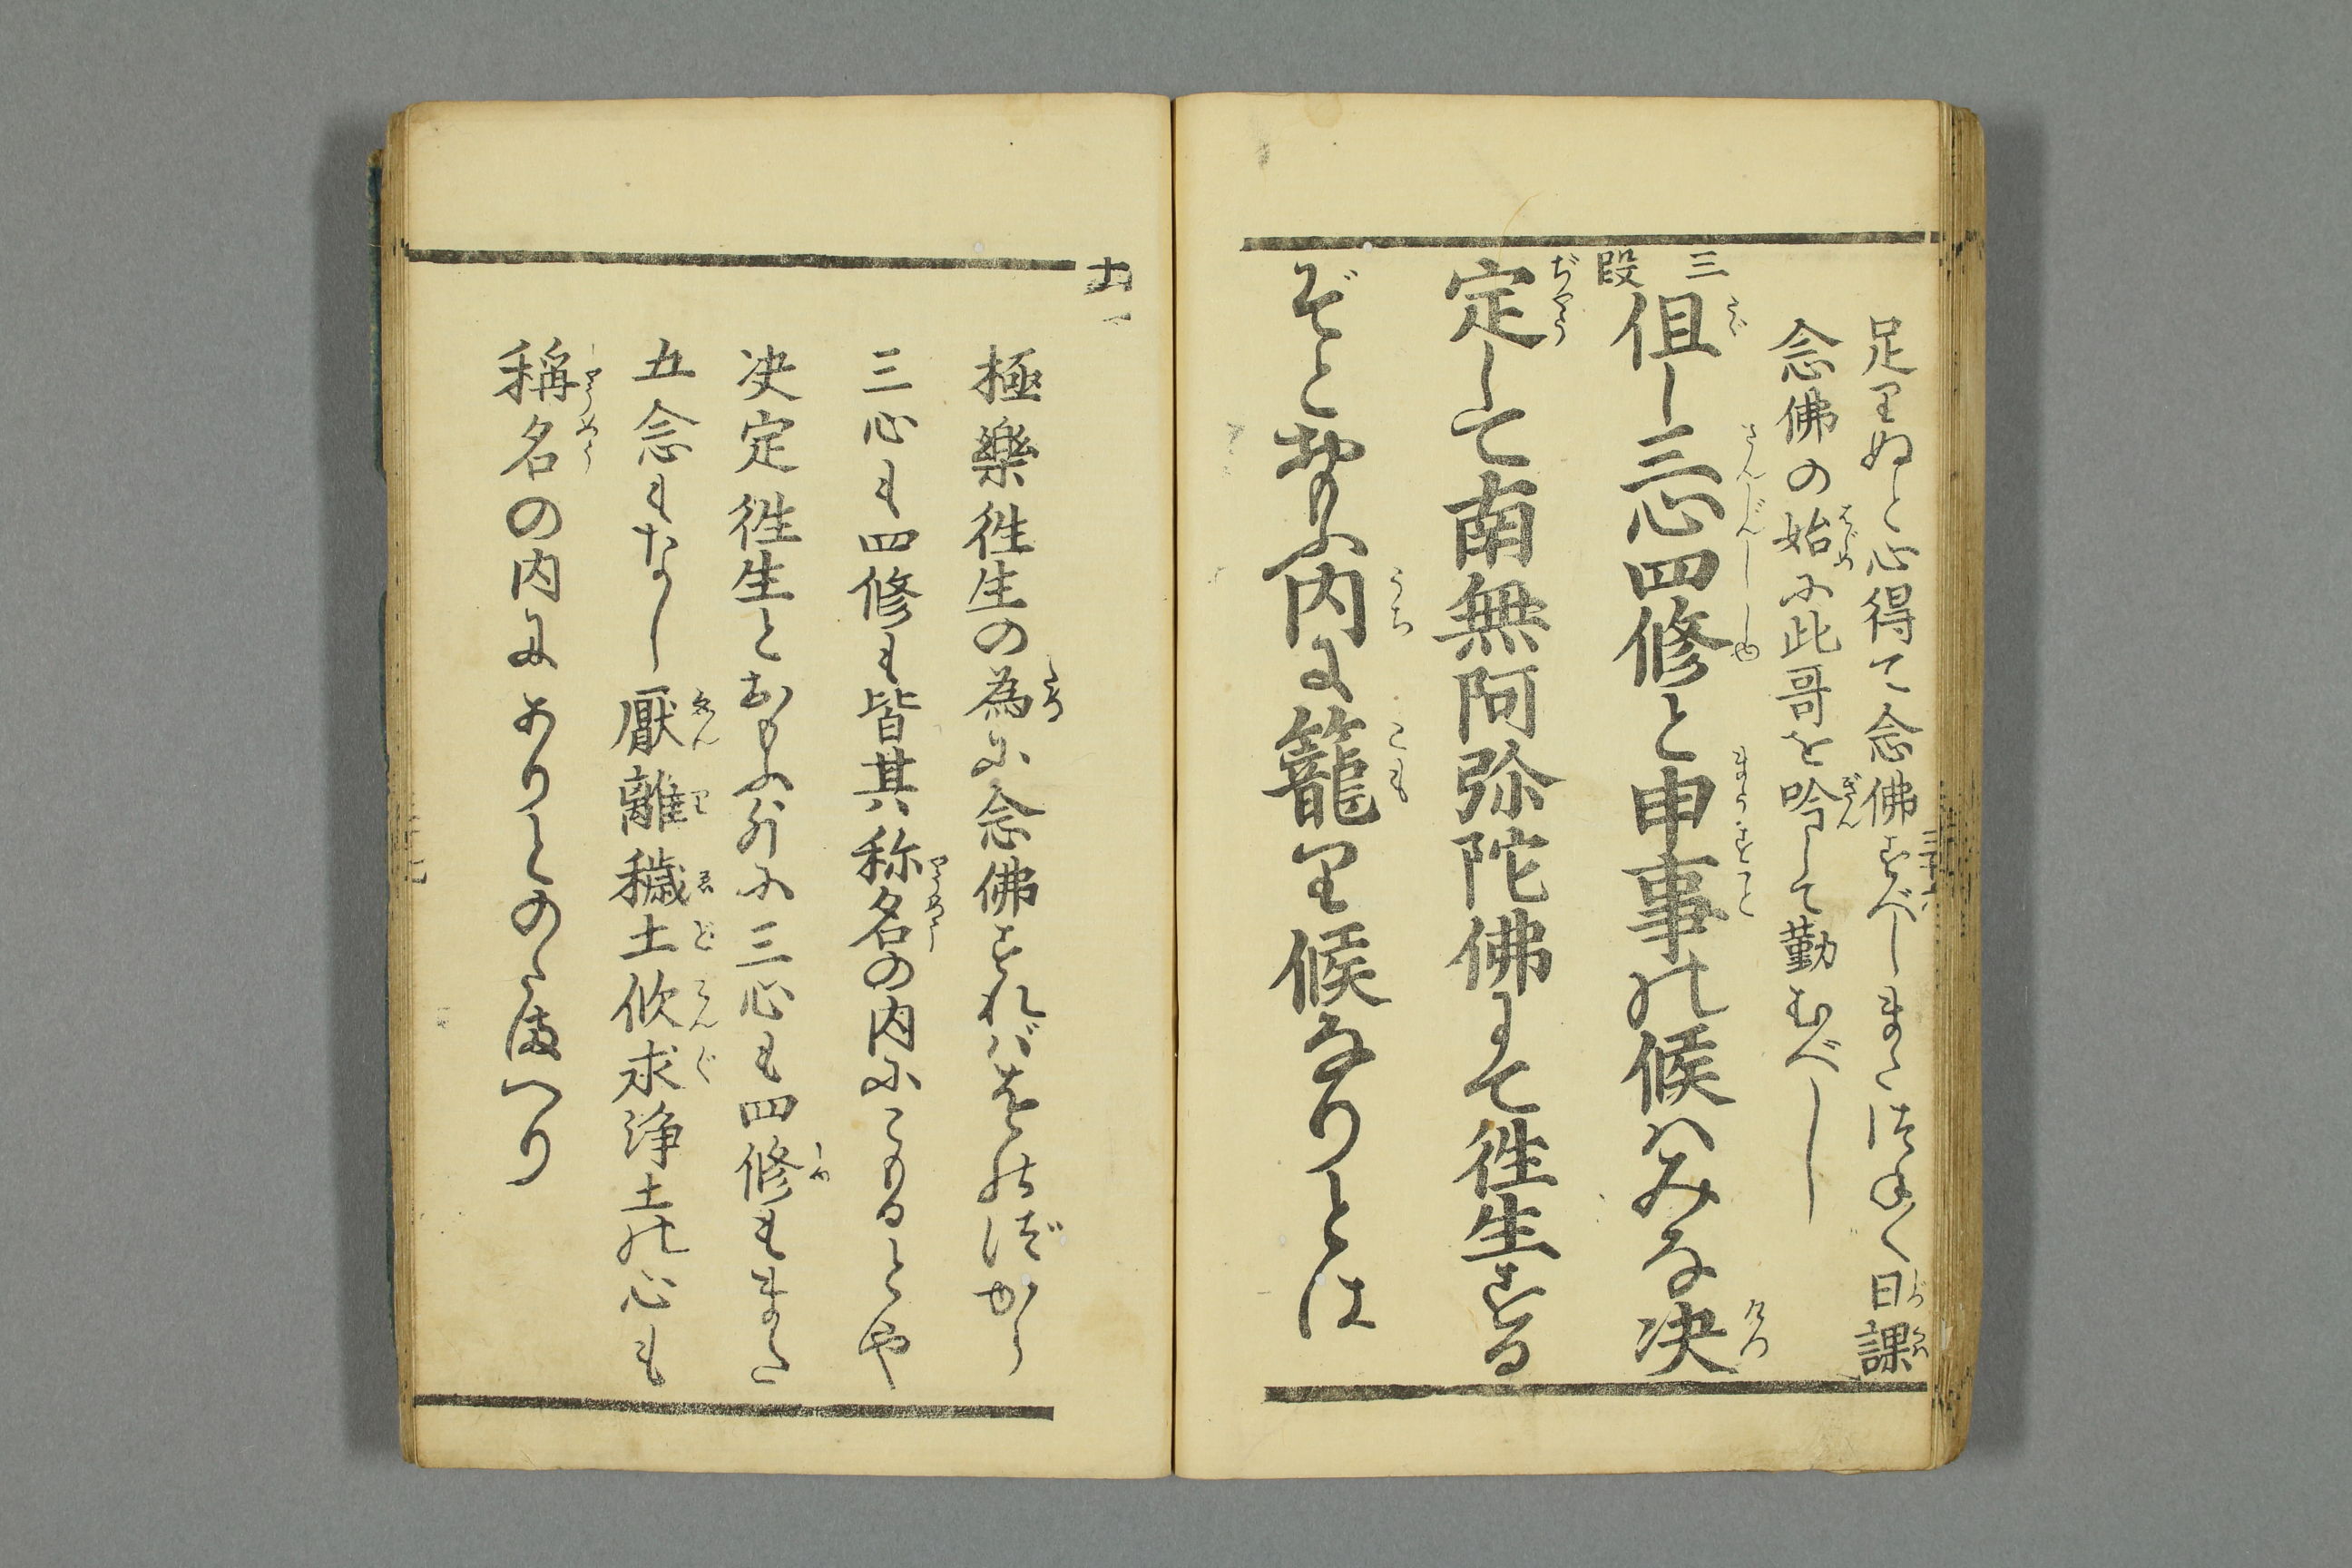 足りぬと心得て念佛すべしまたつねく日課
念佛の始に此哥を吟して勤むべし
三段
但し三心四修と申事の候ハみな決
定して南無阿弥陀佛にて往生する
ぞとおもふ内に籠り候なりとは
極樂往生の為に念佛すればをのづから
三心も四修も皆其称名の内にこもるとや
決定往生とおもふ外に三心も四修もまた
五念もなし厭離穢土欣求浄土の心も
稱名の内にありとのたまへり